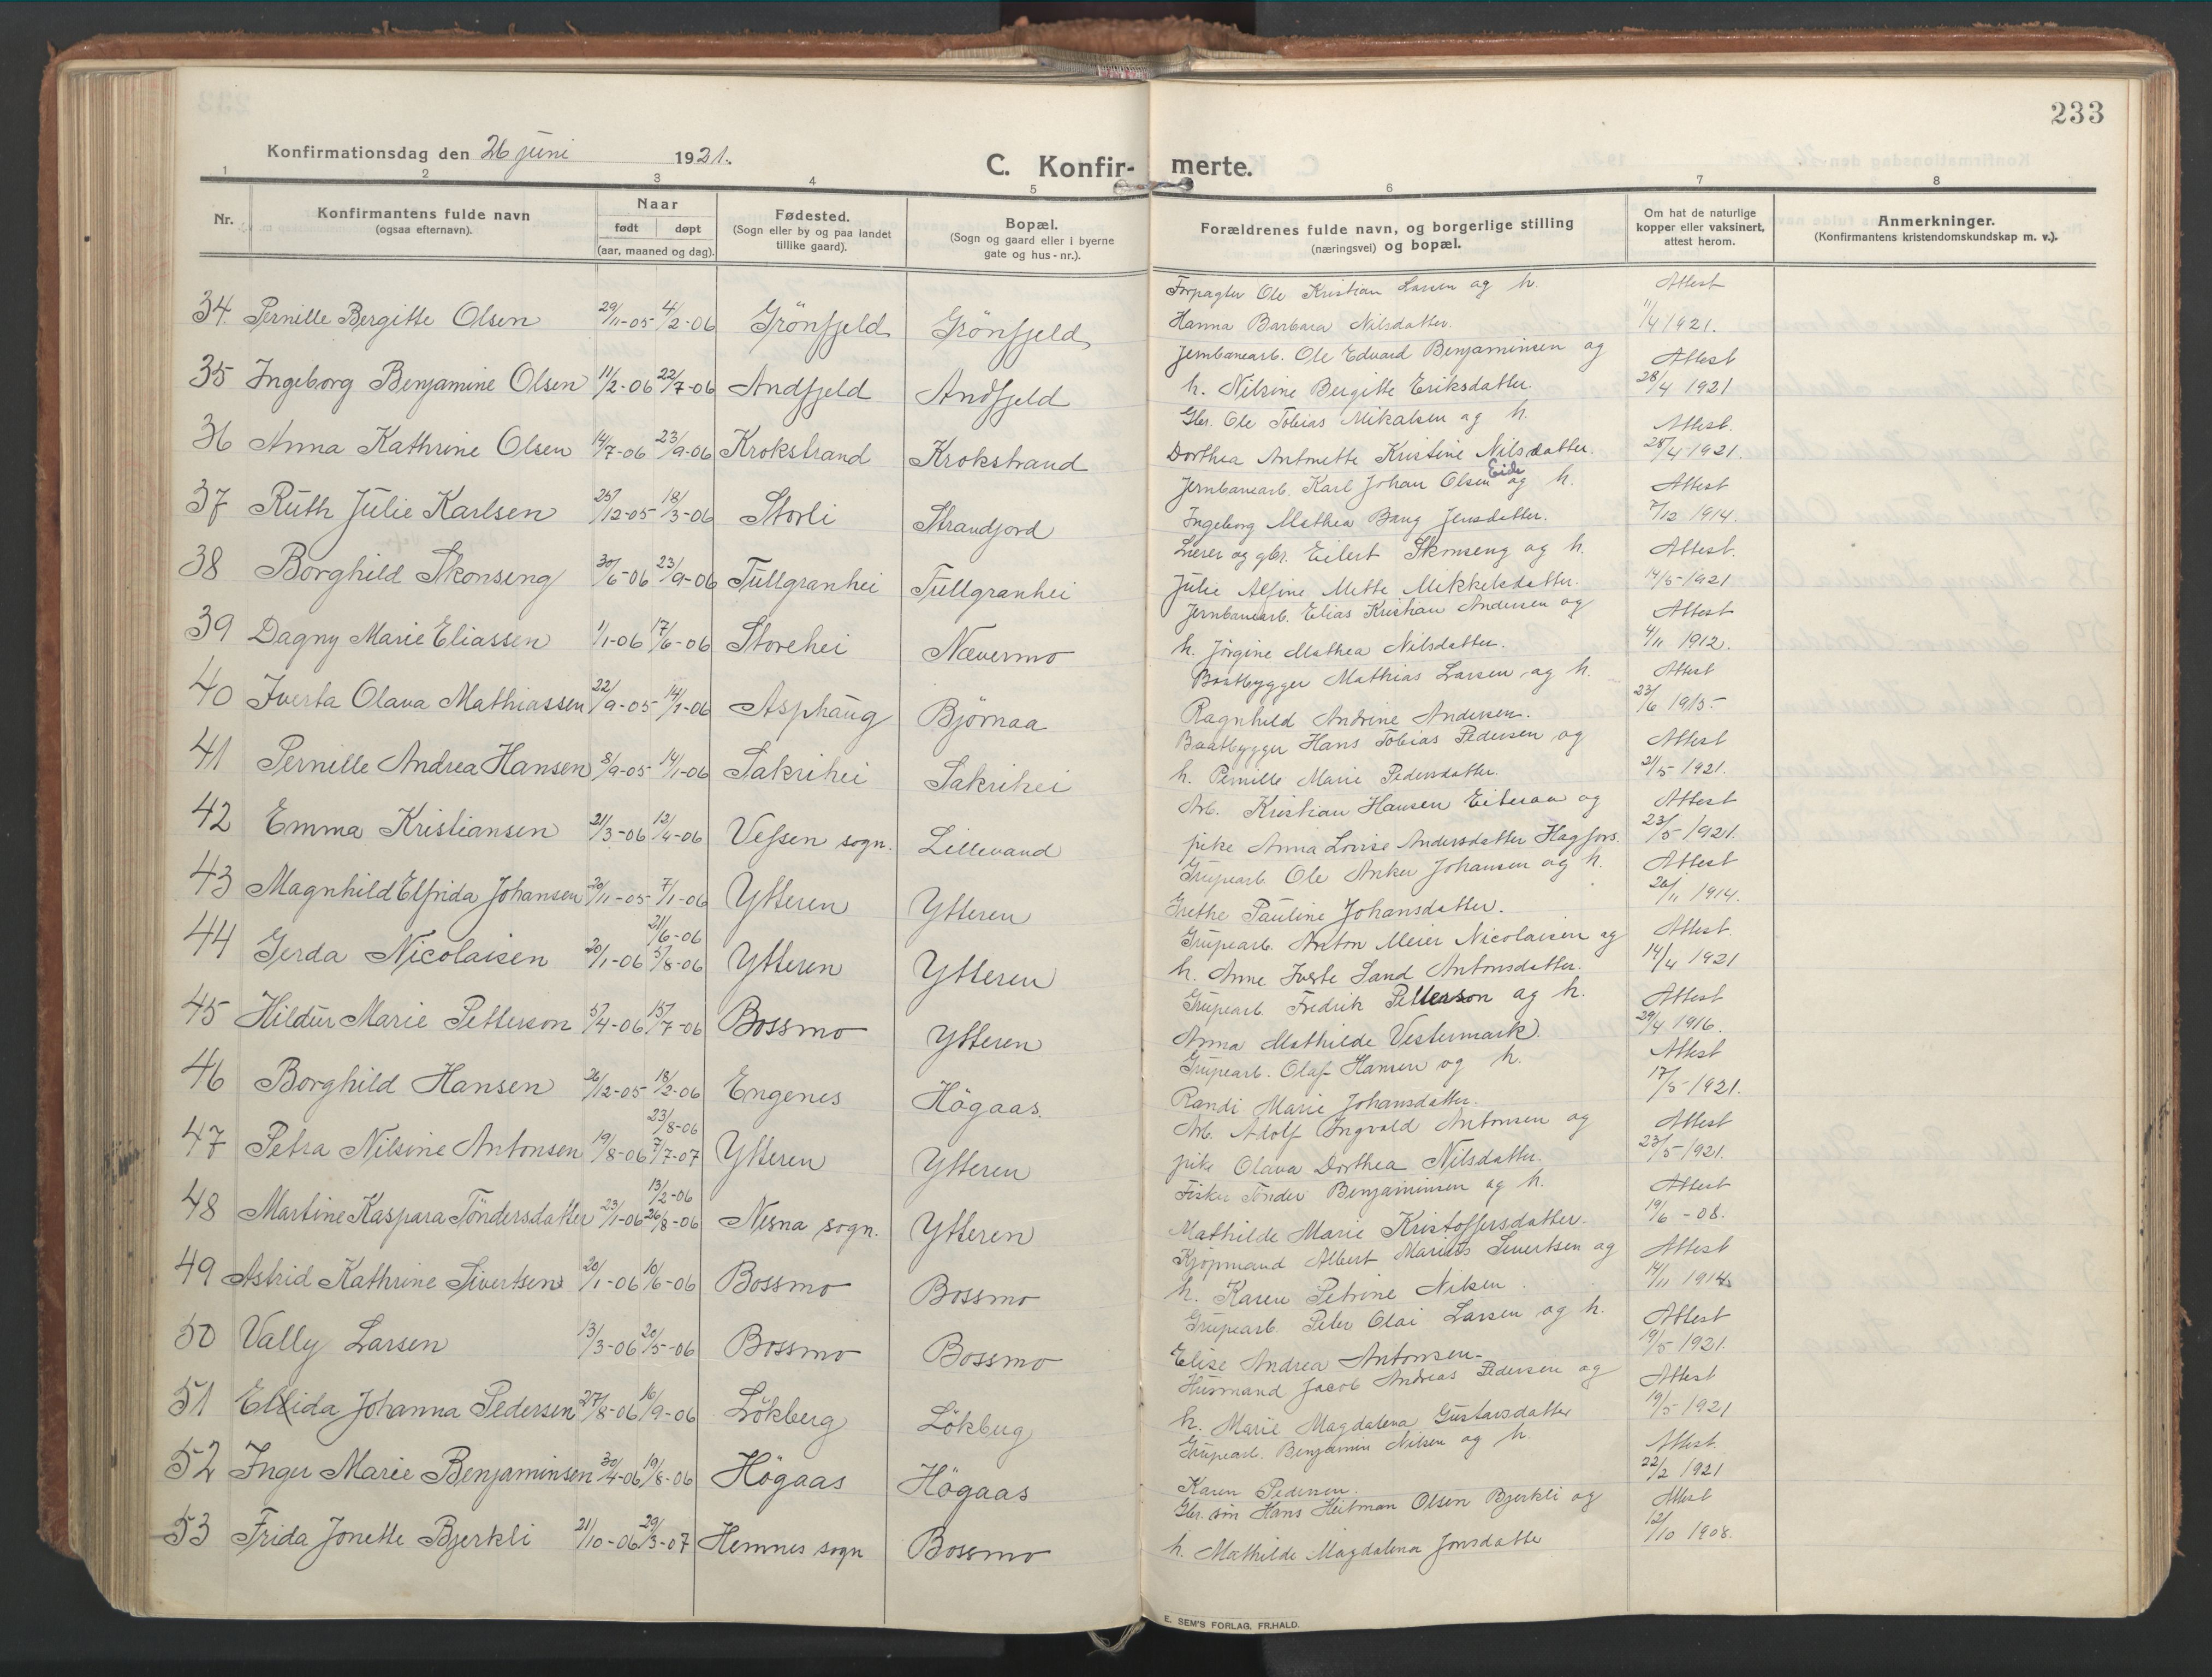 233
Konfirmationsdag den 26 juni 1921.
C. Konfir- merte.
1 2 3 4 5 6 7 8
Nr. Konfirmantens fulde navn (ogsaa efternavn). Naar født døpt (aar, maaned og dag). Fødested. (Sogn eller by og paa landet tillike gaard). Bopæl. (Sogn og gaard eller i byerne gate og hus-nr.). Forældrenes fulde navn, og borgerlige stilling (næringsvei) og bopæl. Om hat de naturlige kopper eller vaksinert, attest herom. Anmerkninger. (Konfirmantens kristendomskundskap m. v.).
34. Pernille Bergitte Olsen 29/11-05 4/2-06 Grönfjeld Grönfjeld Forpagter Ole Kristian Larsen og h. Attest
Hanna Barbara Nilsdatter. 11/4 1921.
35 Ingeborg Benjamine Olsen 11/2-06 22/7-06 Andfjeld Andfjeld Jernbanearb. Ole Edvard Benjaminsen og Attest
h. Nilsine Bergitte Eriksdatter. 28/4 1921
36 Anna Kathrine Olsen 14/7-06 23/9-06 Krokstrand Krokstrand Gbr. Ole Tobias Mikalsen og h. Attest.
Dorthea Antonette Kristine Nilsdatter. 28/4 1921.
37 Ruth Julie Karlsen 25/12-05 18/3-06 Storli Strandjord Jernbanearb. Karl Johan Olsen Eide og h. Attest
Ingeborg Mathea Bang Jensdatter. 7/12 1914.
38 Borghild Skonseng 30/6-06 23/9-06 Tullgranhei Tullgranhei Lærer og gbr. Eilert Skonseng og h. Attest.
Julie Alfine Mette Mikkelsdatter. 14/5-1921
39 Dagny Marie Eliassen 1/1-06 17/6-06 Storehei Nævermo Jernbanearb. Elias Kristian Andersen og Attest
h. Jörgine Mathea Nilsdatter. 4/11 1912.
40 Iverta Olava Mathiassen 22/9-05 14/1-06 Asphaug Björnaa Baatbygger Mathias Larsen og h. Attest
Ragnhild Andrine Andersen. 23/6 1915-
41 Pernille Andrea Hansen 8/9-05 14/1-06 Sakrihei Sakrihei Baatbygger Hans Tobias Pedersen og Attest
h. Pernille Marie Pedersdatter. 21/5 1921.
42 Emma Kristiansen 21/3-06 12/4-06 Vefsen sogn. Lillevand Arb. Kristian Hansen Eiteraa og Attest
pike Anna Lovise Andersdatter Hagfors. 23/5-1921.
43 Magnhild Elfrida Johansen 20/11-05 7/1-06 Ytteren Ytteren Grupearb. Ole Anker Johansen og h. Attest
Grethe Pauline Johansdatter. 26/11 1914.
44 Gerda Nicolaisen 20/1-06 21/6-06 5/8-06 Ytteren Ytteren Grupearb. Anton Meier Nicolaisen og Attest.
h. Anne Iverte Sand Antonsdatter. 14/4 1921
45 Hildur Marie Petterson 5/4-06 15/7-06 Bossmo Ytteren Grupearb. Fredrik Petterson og h. Attest
Anna Mathilde Vestermark. 29/4 1916.
46 Borghild Hansen 26/12-05 18/2-06 Engenes Högaas. Grupearb. Olaf Hansen og h. Attest
Randi Marie Johansdatter. 17/5-1921.
47 Petra Nilsine Antonsen 19/8-06 23/8-06 7/7-07 Ytteren Ytteren Arb. Adolf Ingvald Antonsen og Attest
pike Olava Dorthea Nilsdatter. 23/5-1921.
48 Martine Kaspara Töndersdatter 23/1-06 13/2-06 26/8-06 Nesna sogn. Ytteren Fisker Tönder Benjaminsen og h. Attest
Mathilde Marie Kristoffersdatter. 19/6 -08.
49 Astrid Kathrine Sivertsen 20/1-06 10/6-06 Bossmo Bossmo Kjöpmand Albert Marius Sivertsen og Attest
h. Karen Petrine Nilsen. 14/11 1914
50 Vally Larsen 13/3-06 20/5-06 Bossmo Bossmo Grupearb. Peter Olai Larsen og h. Attest
Elise Andrea Antonsen. 19/5-1921.
51 Ellida Johanna Pedersen 27/8-06 16/9-06 Lökberg Lökberg Husmand Jacob Andreas Pedersen og Attest
h. Marie Magdalena Gustavsdatter 19/5-1921
52 Inger Marie Benjaminsen 30/4-06 19/8-06 Högaas Högaas Grupearb. Benjamin Nilsen og h. Attest.
Karen Pedersen. 22/2 1921
53 Frida Jonette Bjerkli 21/10-06 29/3-07 Hemnes sogn Bossmo Gbr. sön Hans Heitman Olsen Bjerkli og Attest
h. Mathilde Magdalena Jonsdatter 12/10 1908.
E. SEM'S FORLAG, FR.HALD.